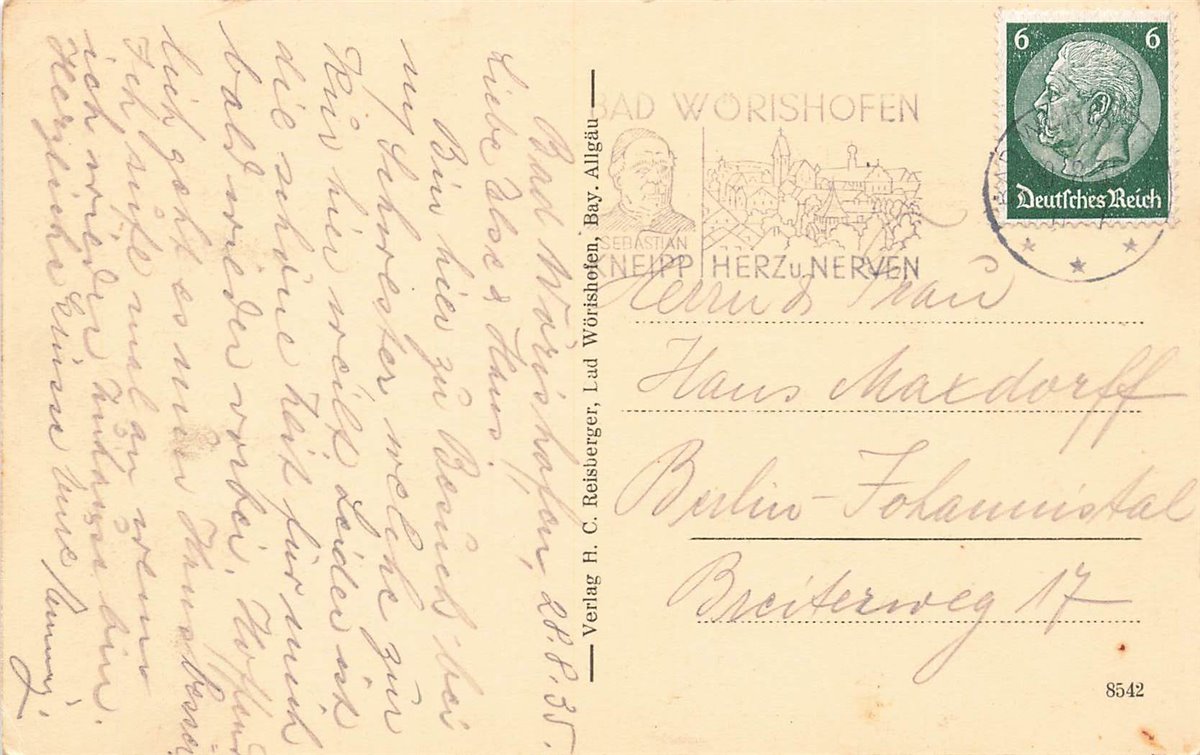 Bad Wörishofen, 28.8.35.
Liebe Ilse & Hans!
Bin hier zu Besuch bei
my Schwester welche zur
Kur hier weilt. Leider ist
die schöne Zeit für mich
bald wieder vorbei. Hoffent
lich geht es nun Hans besser
Ich rufe mal an wenn
ich wieder Zuhause bin.
Herzliche Grüsse Eure
Verlag H. C. Reisberger, Bad Wörishofen, Bay. Allgäu
BAD WÖRISHOFEN
SEBASTIAN
KNEIPP HERZ u. NERVEN
6 6
Deutsches Reich
Herrn & Frau
Hans Maxdorff
Berlin-Johannistal
Breiterweg 17
8542